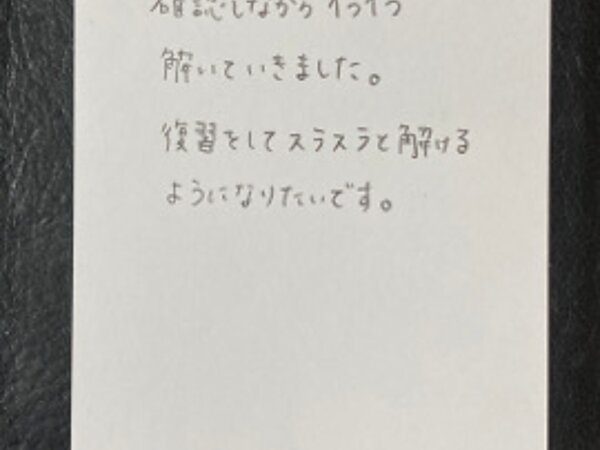 確認しながら1つ1つ
解いていきました。
復習をしてスラスラと解ける
ようになりたいです。